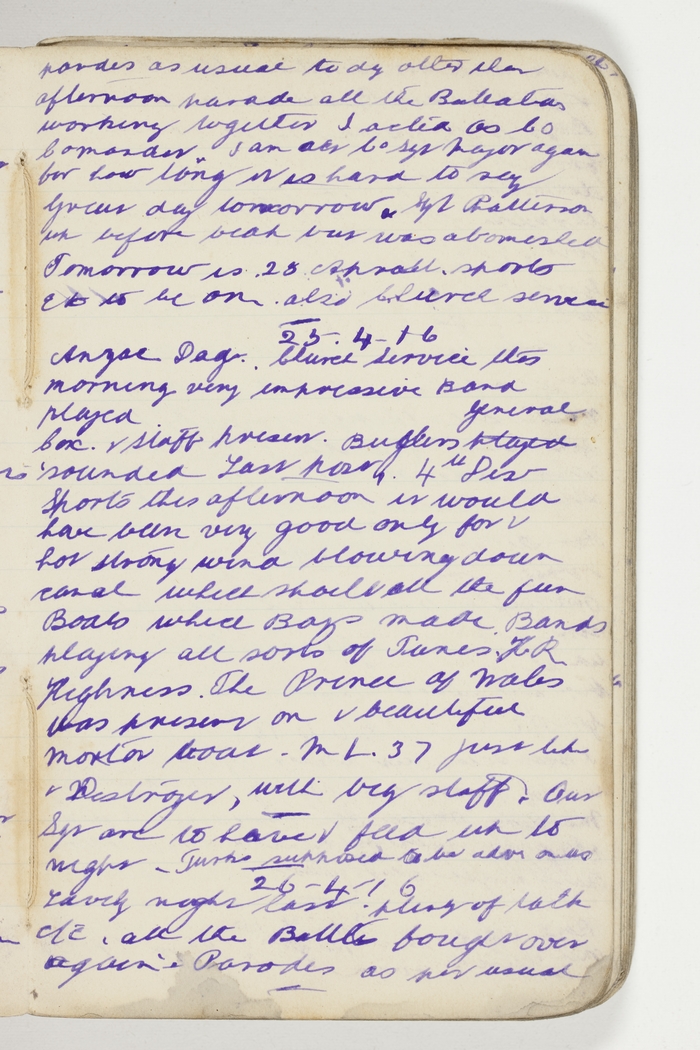 parades as usual to day
afternoon parade all the
working together I acted as Co
Comander. I am act Co Sgt Major again
for how long it is hard to say
Great day tomorrow. Sgt Patterson
up before beak but was
Tomorrow is 25 April. sports
to be on. also Church service
25.4-16
Anzac Day. Church service this
morning very impressive Band
played General
Cox. & staff present. Buglers played
sounded Last post. 4th Div
Sports this afternoon it would
have been very good only for a
hot strong wind blowing down
canal which spoilt all the fun
Boats which Boys made. Bands
playing all sorts of Tunes. H R
Highness. The Prince of Wales
was present on a beautiful
mortor boat - M L. 37 just like
a Destroyer, with big staff. Our
Sgt are to have a feed up to
night - Turks supposed to be
26-4-16
Lovely night last. plenty of talk
etc. all the Battles fought over
again - Parades as per usual